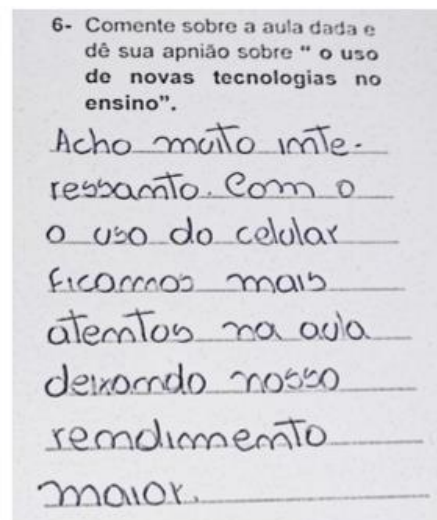 6- Comente sobre a aula dada e
dê sua apnião sobre “ o uso
de novas tecnologias no
ensino”.
Acho muito inte-
ressanto. Com o
o uso do celular
ficamos mais
atentos na aula
deixando nosso
rendimento
maior.